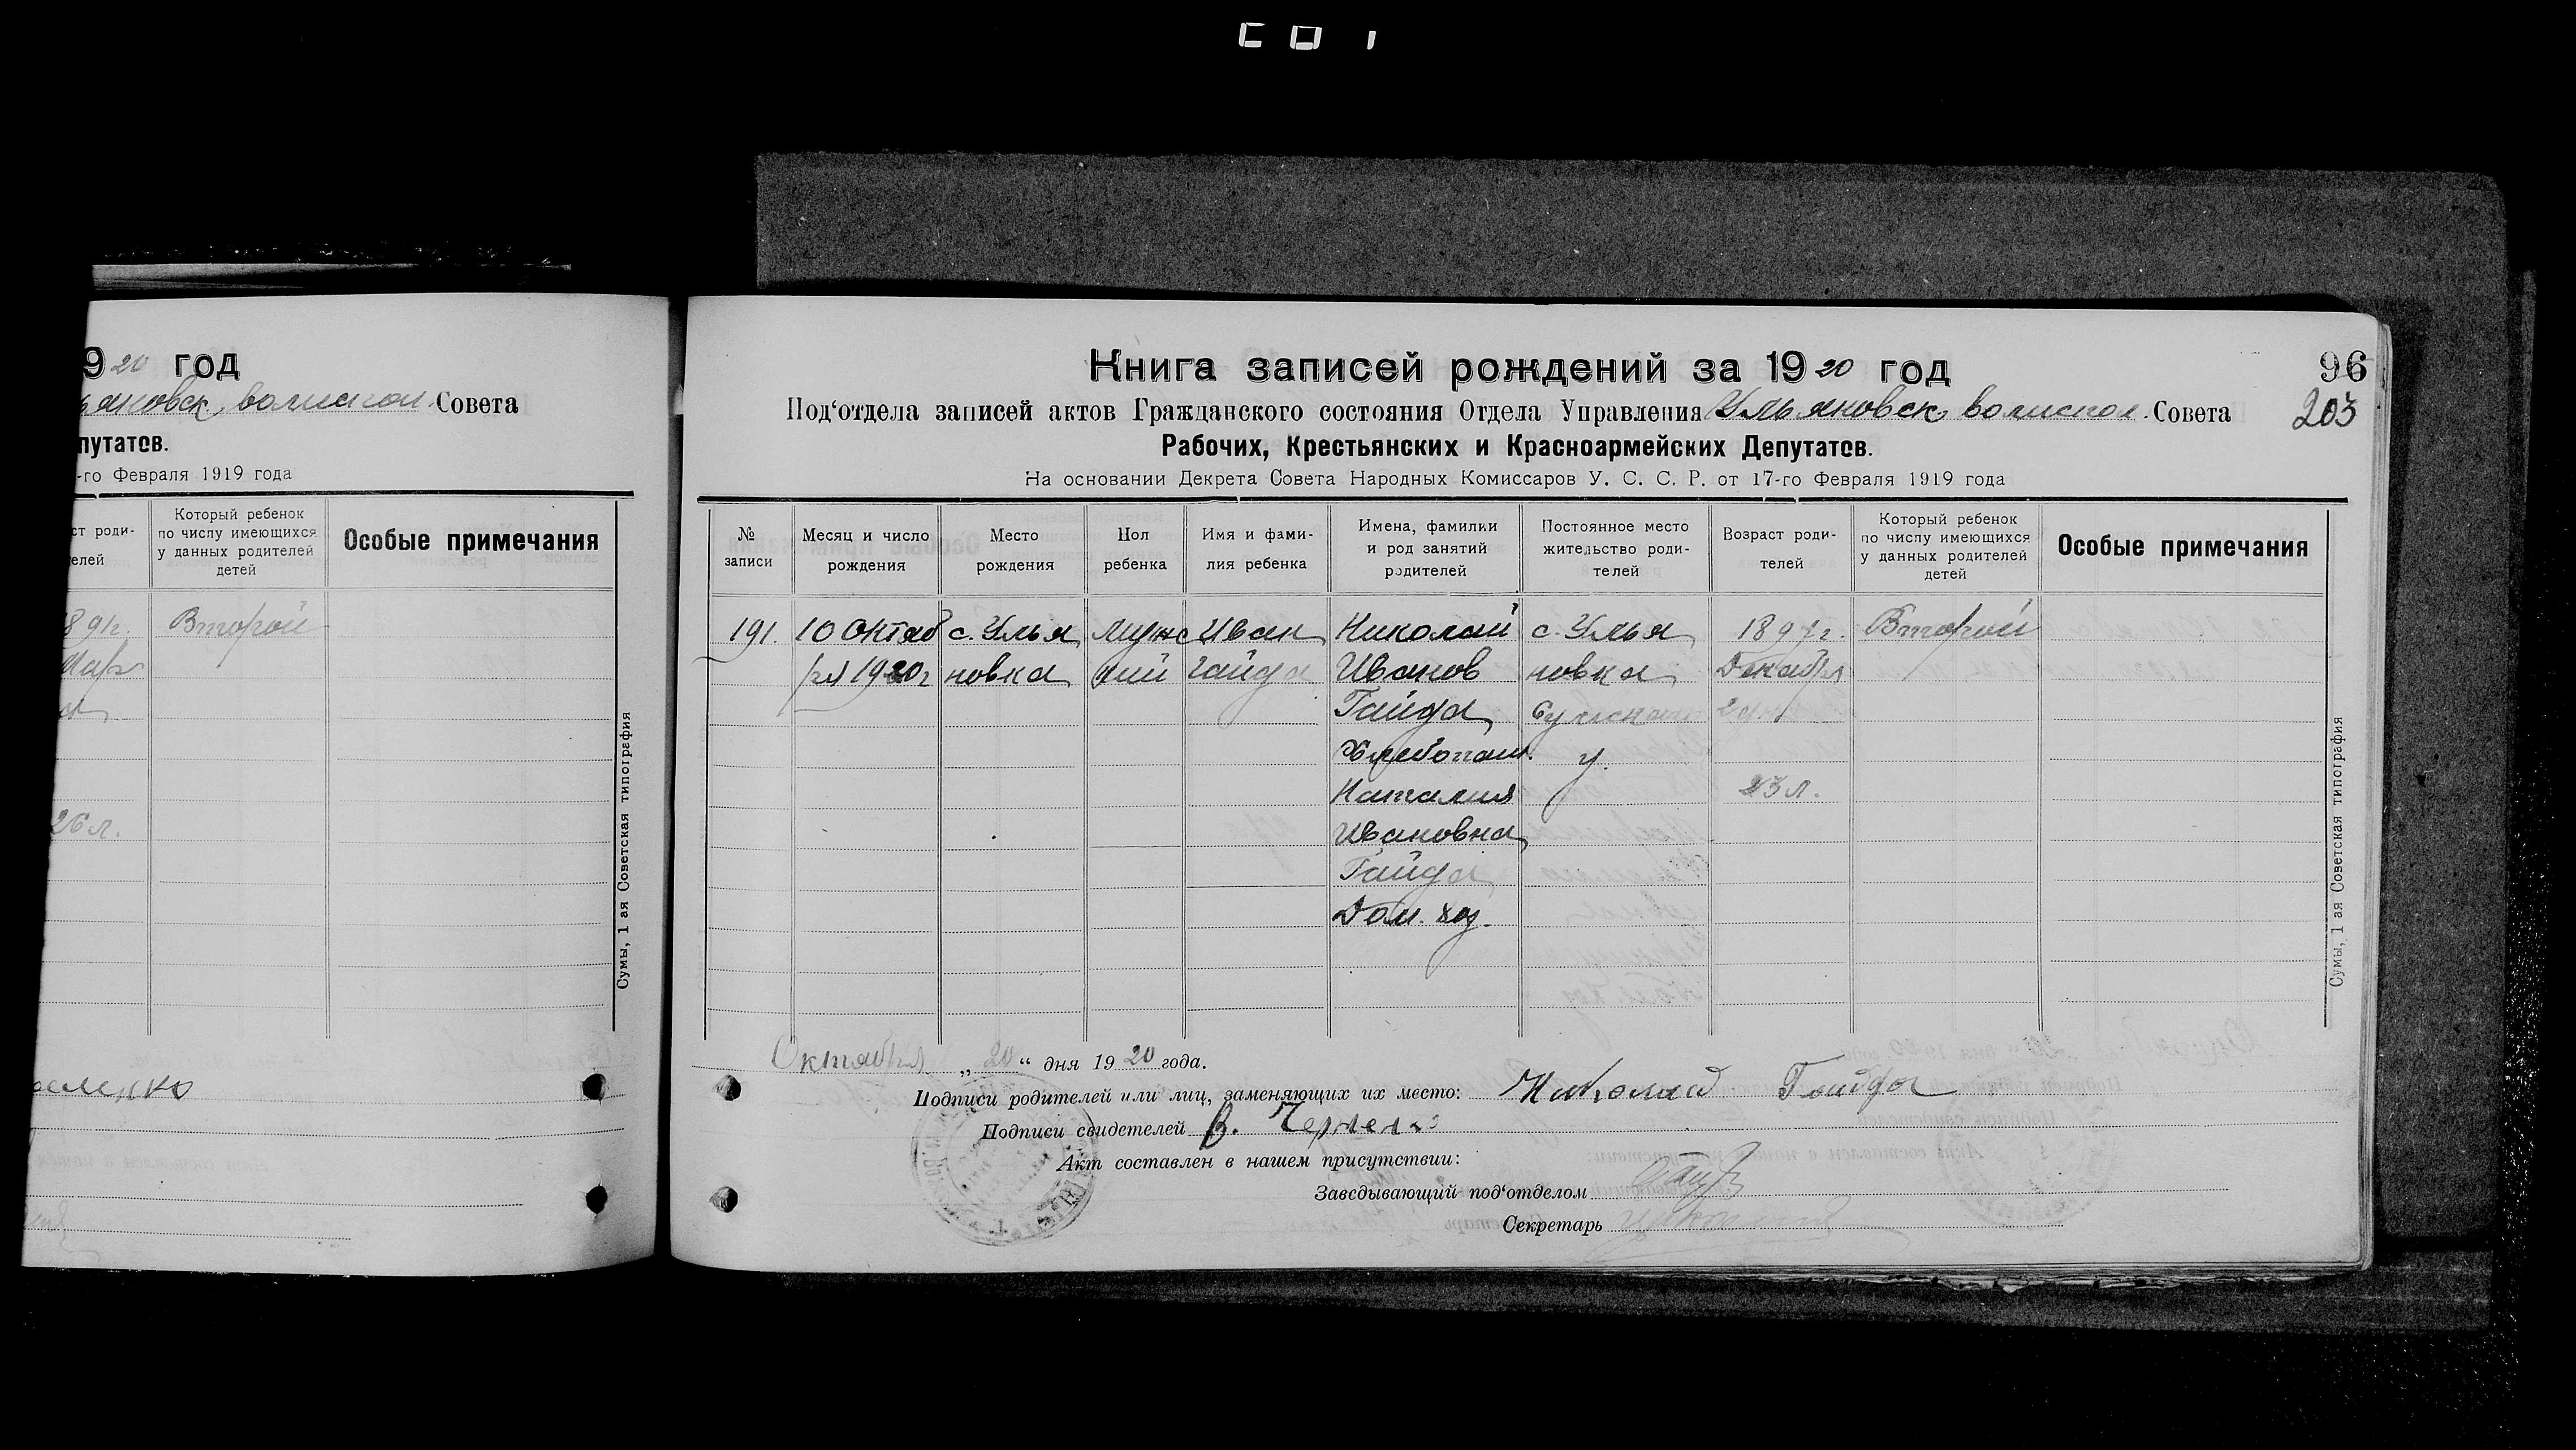 920 год
ьяновск. волиспол. Совета
путатов.
-го Февраля 1919 года
ст роди-
елей
Который ребенок
по числу имеющихся
у данных родителей
детей
Особые примечания
Второй
Мар
26 л.
Сумы, 1 ая Советская типография
96
203
Книга записей рождений за 1920 год
Под‘отдела записей актов Гражданского состояния Отдела Управления Ульяновск. волиспол. Совета
Рабочих, Крестьянских и Красноармейских Депутатов.
На основании Декрета Совета Народных Комиссаров У. С. С. Р. от 17-го Февраля 1919 года
№
записи
Месяц и число
рождения
Место
рождения
Пол
ребенка
Имя и фами-
лия ребенка
Имена, фамилии
и род занятий
родителей
Постоянное место
жительство роди-
телей
Возраст роди-
телей
Который ребенок
по числу имеющихся
у данных родителей
детей
Особые примечания
191.
10 Октяб
ря 1920 г
с. Улья
новка
мужс
кий
Иван
Гайда
Николай
Иванов
Гайда
Хлебопаш.
Наталия
Ивановна
Гайда
Дом. хоз.
с. Улья
новка
Сумского
у.
1897 г.
Декабря
23 л.
Второй
Сумы, 1 ая Советская типография
Октября „20“ дня 1920 года.
Подписи родителей или лиц, заменяющих их место: Николай Гайда
Подписи свидетелей В.
Акт составлен в нашем присутствии:
Заведывающий под‘отделом
Секретарь